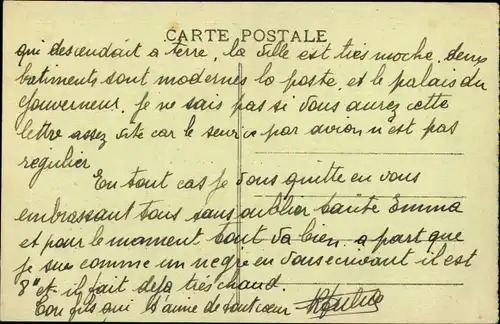 CARTE POSTALE
qui descendait a terre, la ville est très moche. deux
batiments sont modernes la poste, et le palais du
Gouverneur. Je ne sais pas si vous aurez cette
lettre assez vite car le service par avion n'est pas
regulier
En tout cas je vous quitte en vous
embrassant tous sans oublier tante Emma
et pour le moment tout va bien. a part que
je sue comme un negre en vous ecrivant il est
8" et il fait deja très chaud.
Ton fils qui t'aime de tout cœur